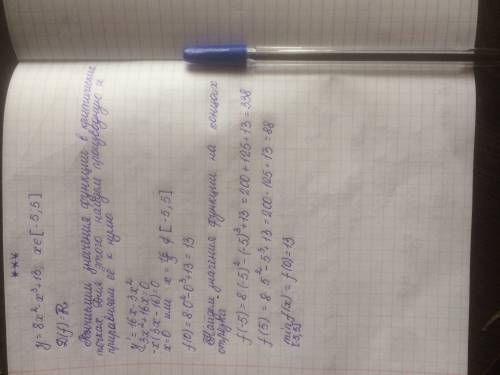 ***
y = 8x² - x³ + 13; x ∈ [-5, 5]
D(f) - R.
Вычислим значения функции в критических
точках. Для этого найдем производную и
приравняем её к нулю
y' = 16x - 3x²
-3x² + 16x = 0
-x(3x - 16) = 0
x = 0 или x = 16/3 ∉ [-5, 5]
f(0) = 8·0² - 0³ + 13 = 13
Найдем значения функции на концах
отрезка
f(-5) = 8(-5)² - (-5)³ + 13 = 200 + 125 + 13 = 338
f(5) = 8·5² - 5³ + 13 = 200 - 125 + 13 = 88
min f(x) = f(0) = 13